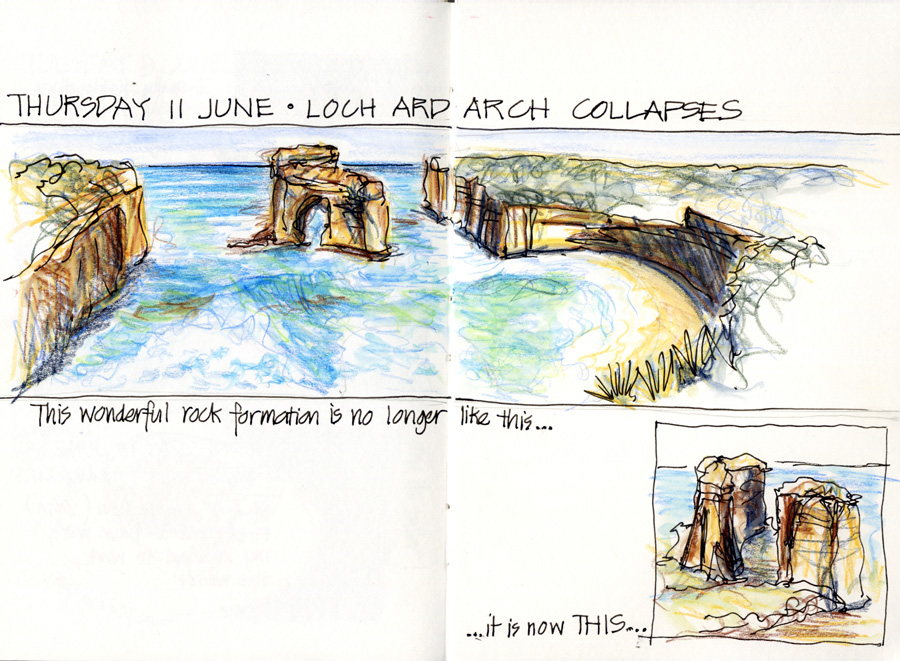 THURSDAY 11 JUNE • LOCH ARD ARCH COLLAPSES
This wonderful rock formation is no longer like this...
...it is now THIS....